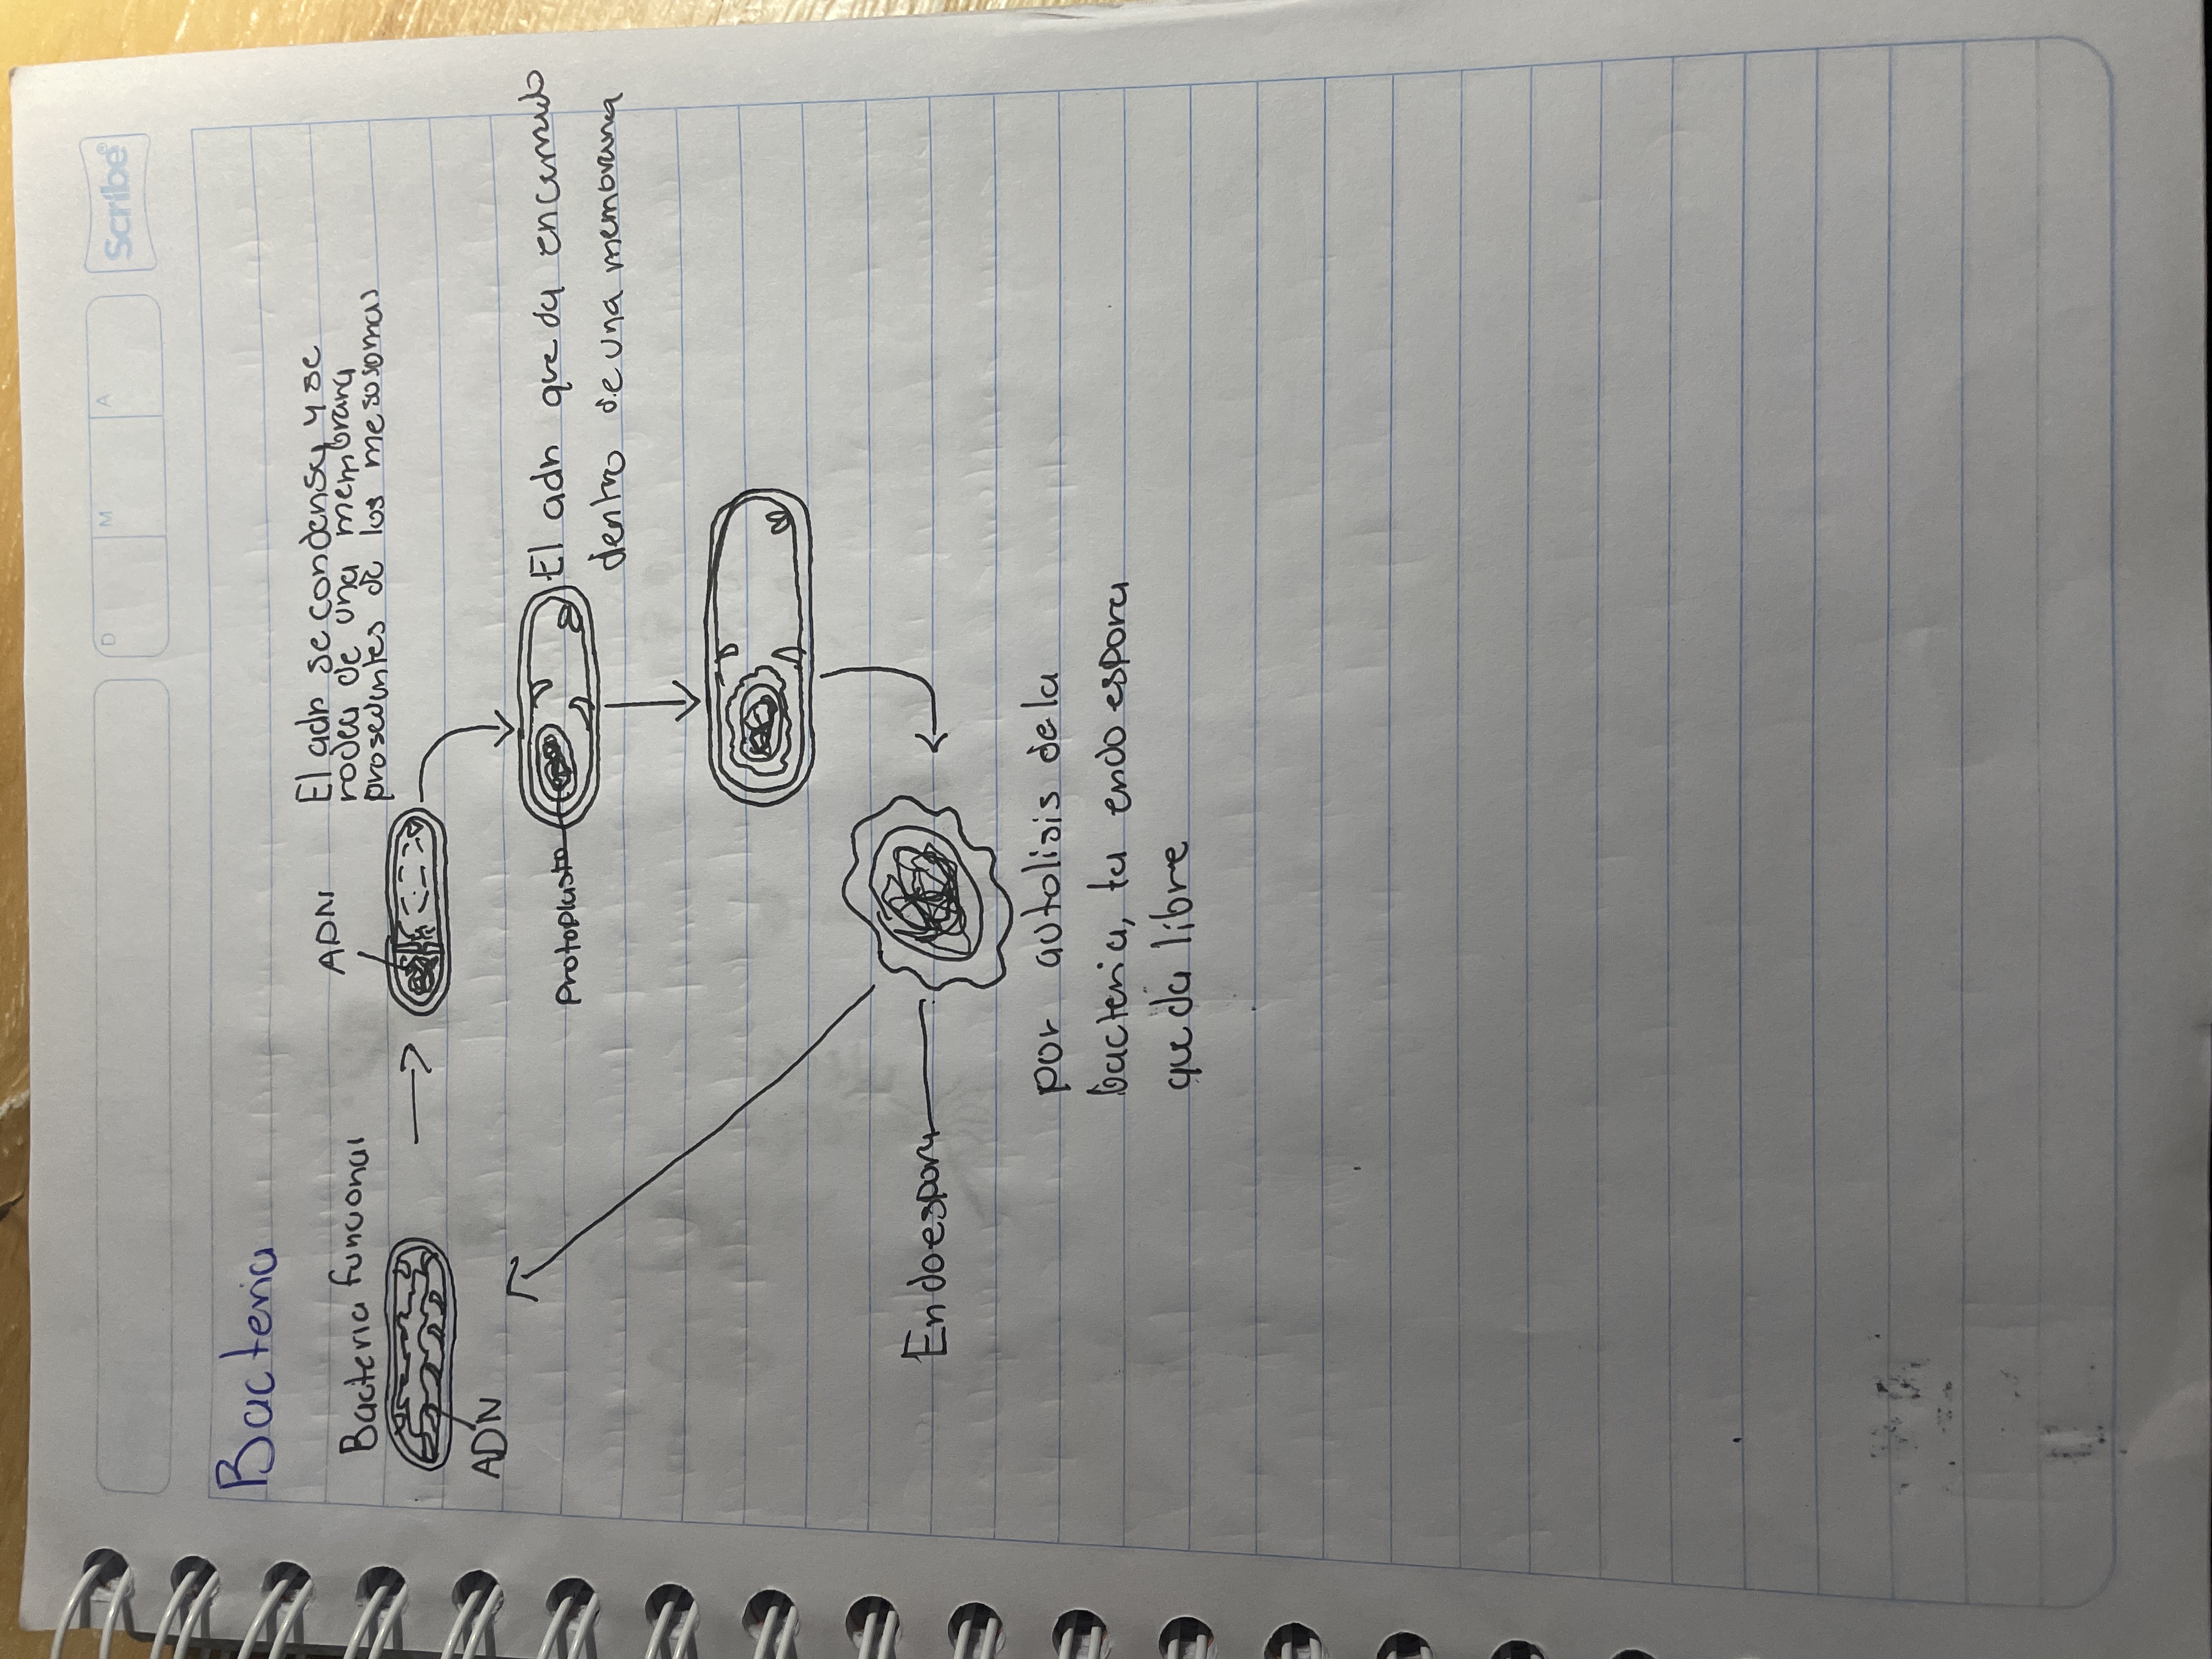 Scribe®
D M A
Bacteria
Bacteria funcional
ADN
ADN
El adn se condensa y se
rodea de una membrana
prosedentes de los mesosomas
Protoplasto
El adn que da encerrado
dentro de una membrana
Endoespora
por autolisis de la
bacteria, la endo espora
queda libre